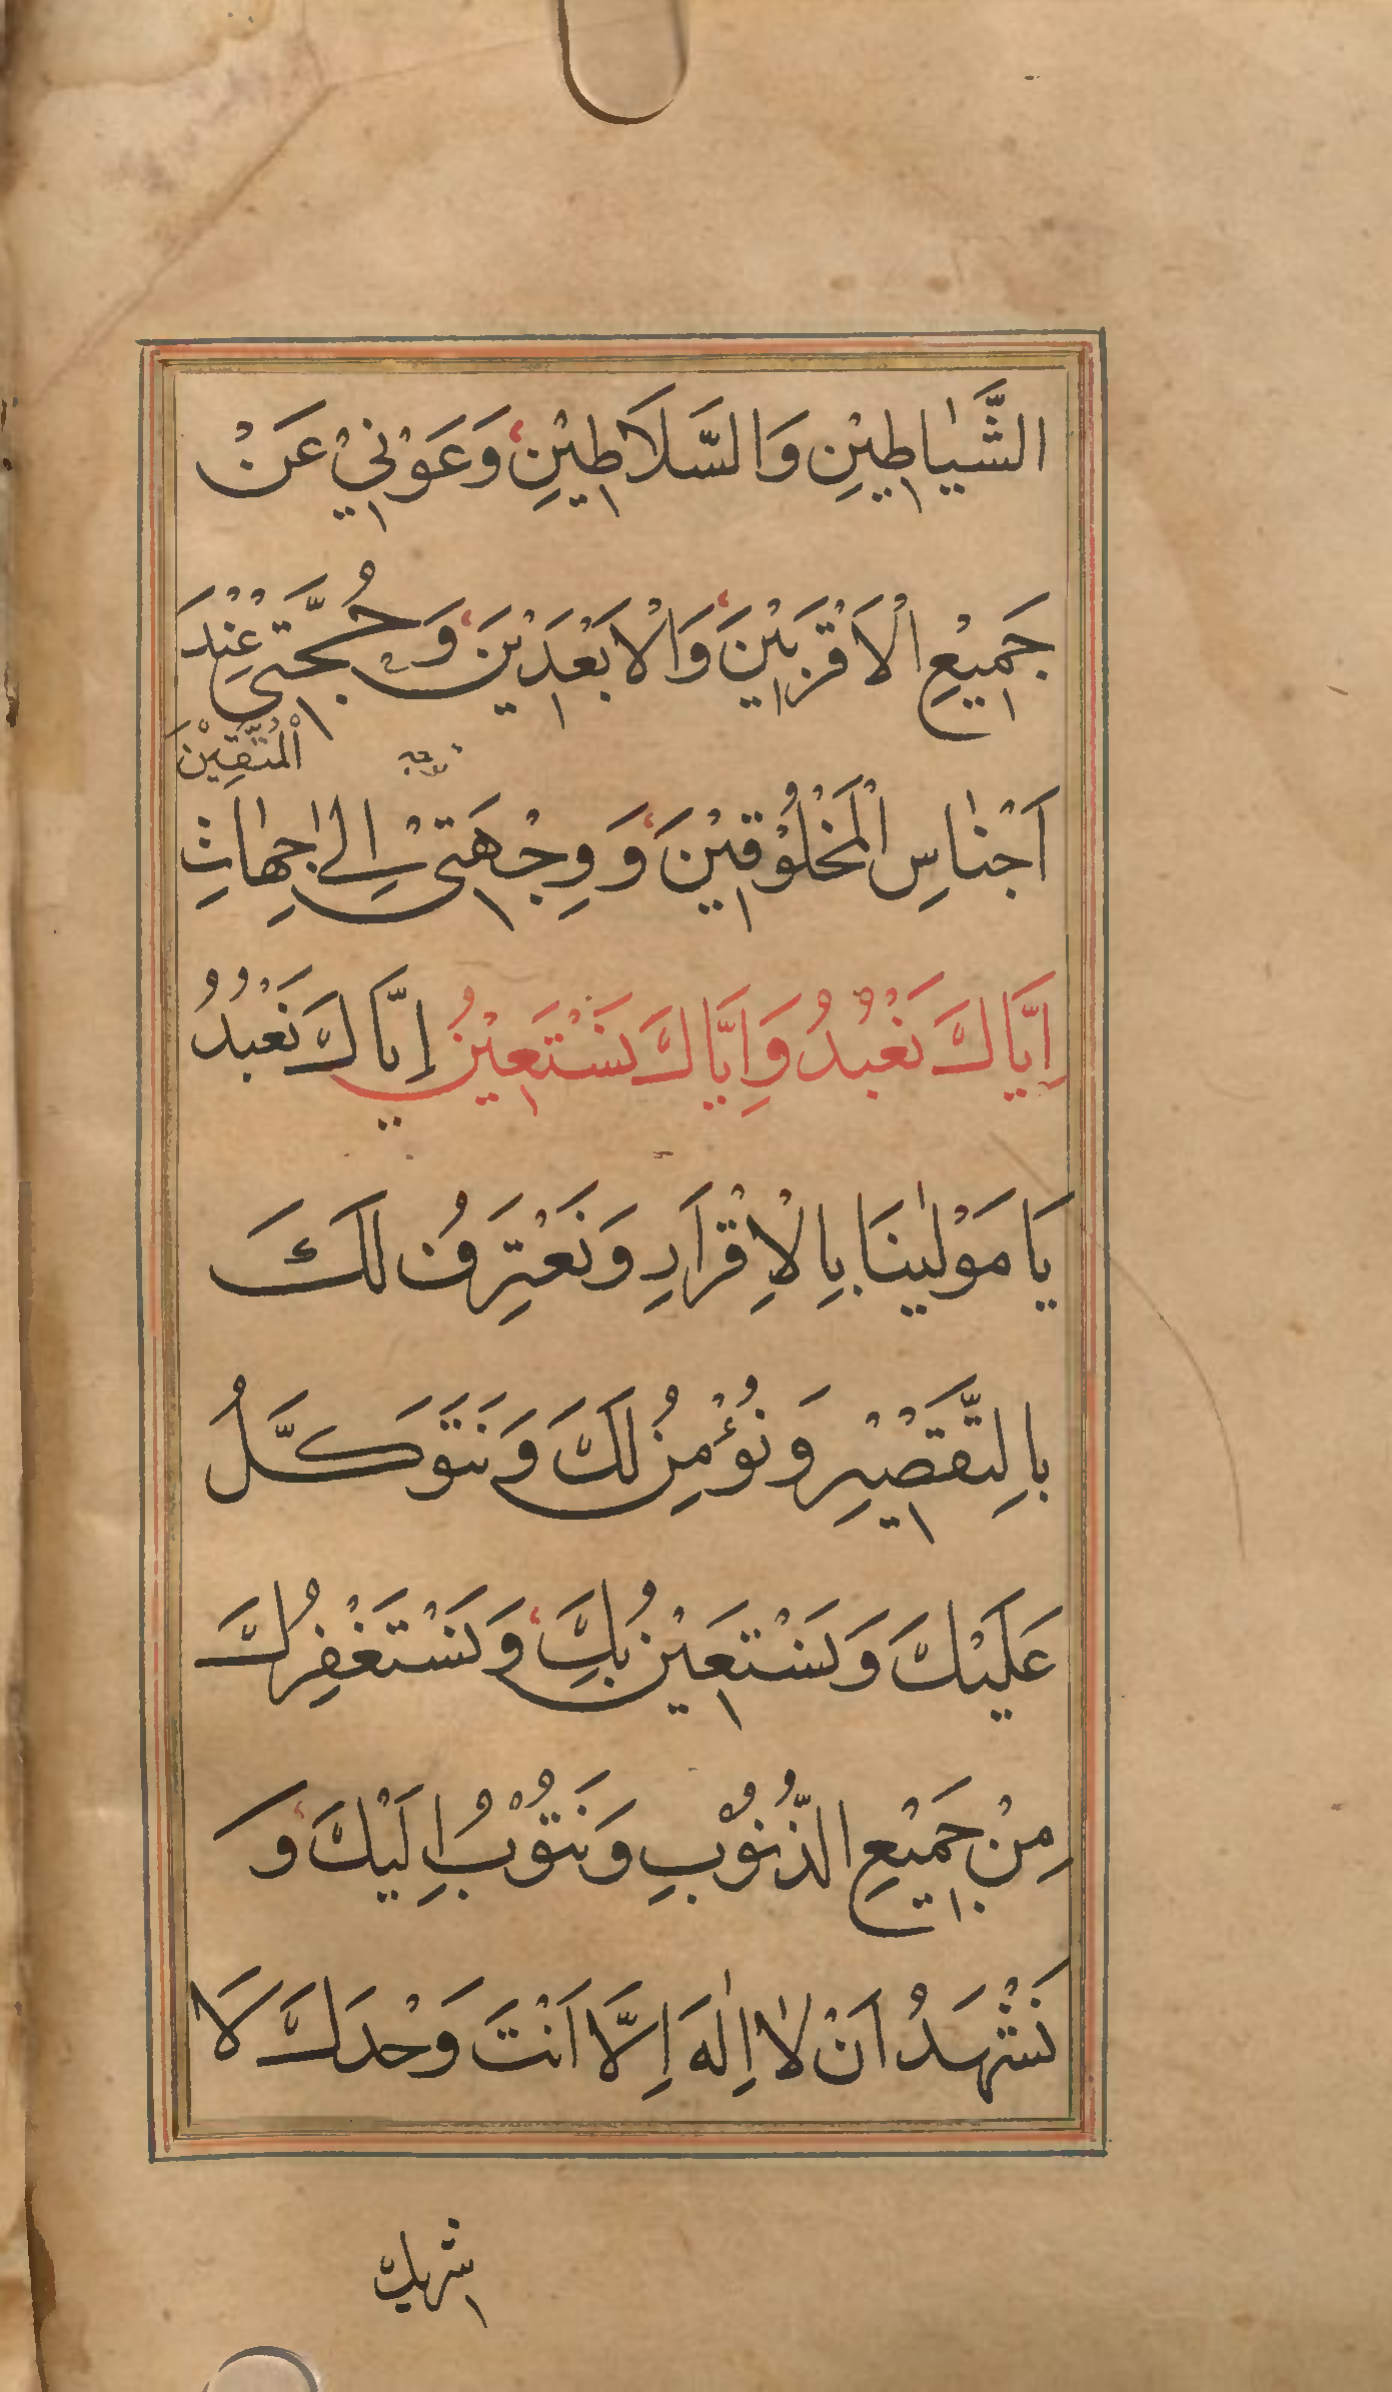 الشَّيٰاطِيْنِ وَالسَّلَاطِيْنِ وَعَوْنِيْ عَنْ
جَمِيْعِ الْاَقْرَبِيْنَ وَالْاَبْعَدِيْنَ وَحُجَّتِيْ عِنْدَ
الْمُتَّقِيْنَ
اَجْنٰاسِ الْمَخْلُوْقِيْنَ وَوِجْهَتِيْ اِلىٰ جِهٰاتِ
اِيَّاكَ نَعْبُدُ وَاِيَّاكَ نَسْتَعِيْنُ اِيَّاكَ نَعْبُدُ
يَا مَوْلٰينَا بِالْاِقْرَارِ وَنَعْتَرِفُ لَكَ
بِالتَّقَصْيْرِ وَنُؤْمِنُ لَكَ وَنَتَوَكَّلُ
عَلَيْكَ وَنَسْتَعِيْنُ بِكَ وَنَسْتَغْفِرُكَ
مِنْ جَمِيْعِ الذُّنُوْبِ وَنَتُوْبُ اِلَيْكَ وَ
نَشْهَدُ اَنْ لٰا اِلٰهَ اِلَّا اَنْتَ وَحْدَكَ لَا
شريك